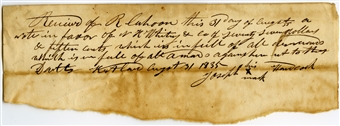 Received of R Cahoon this 31 day of August a
note in favor of N H White & Co of twenty seven dollars
& fifteen cents which is in full of all
which is in full of all a up to this
Date August 31 1835 his
Joseph X Hancock
mark